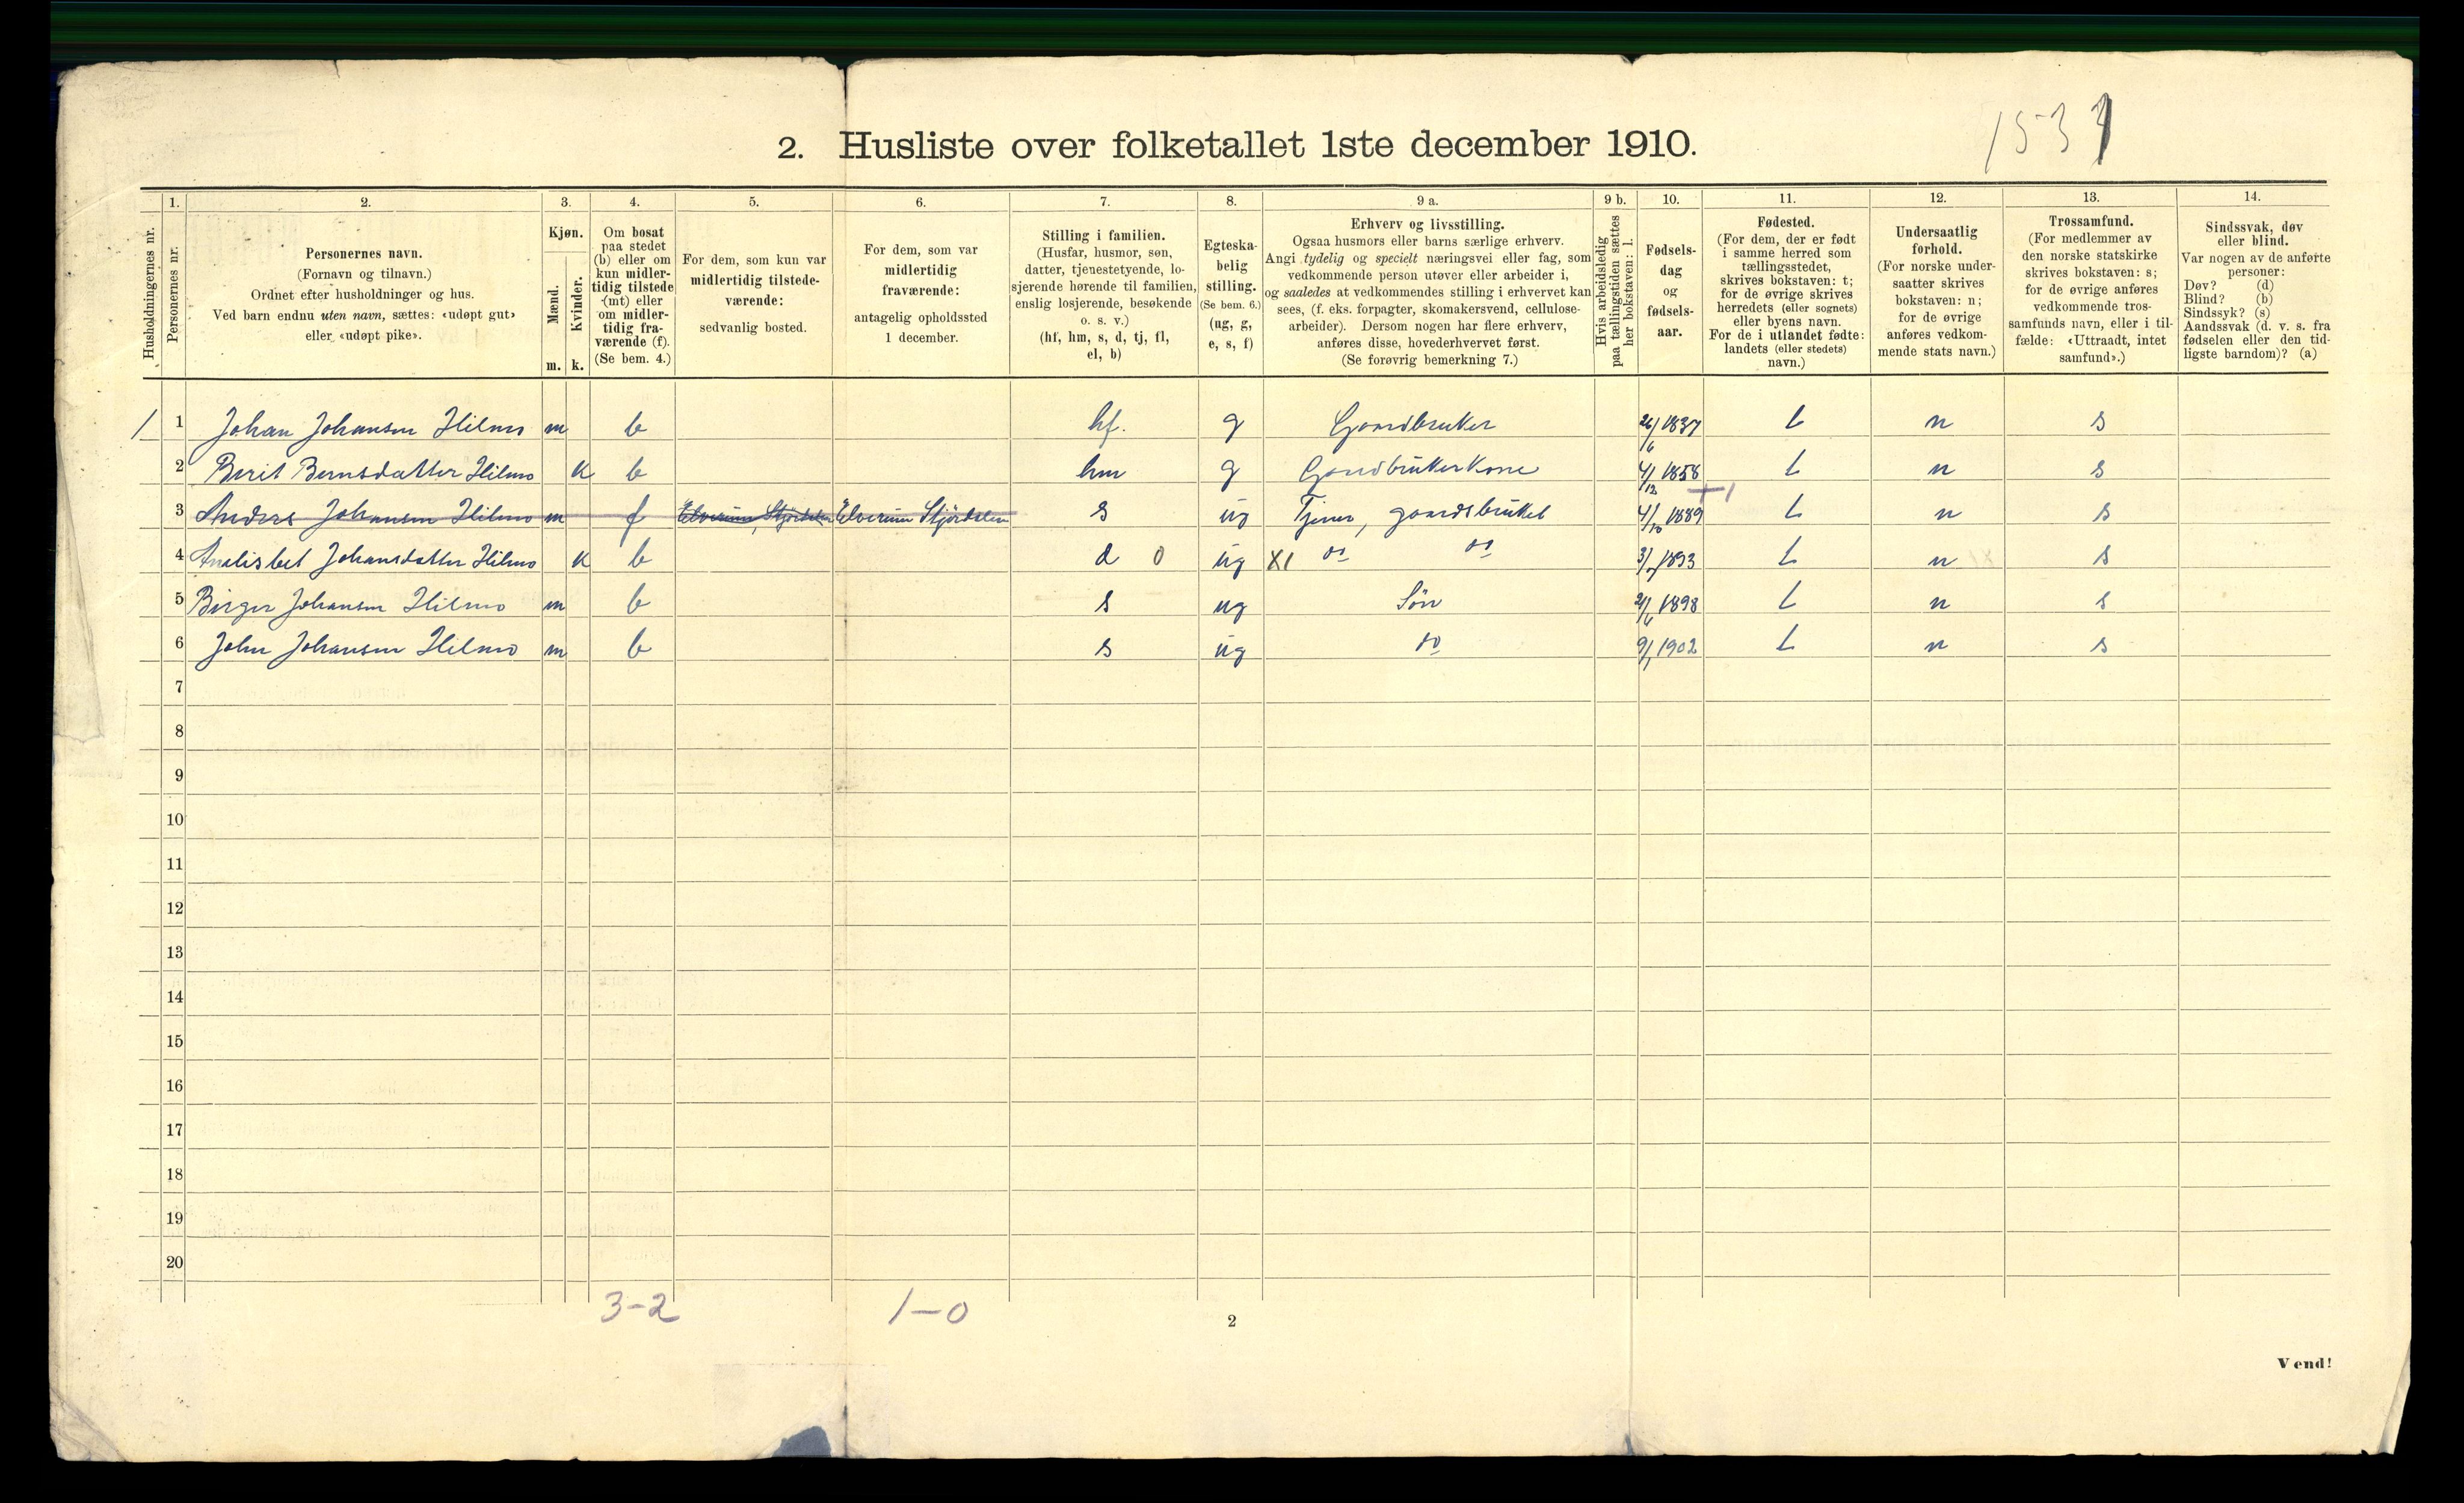 153
2. Husliste over folketallet 1ste december 1910.
Husholdningernes nr.
1.
Personernes nr.
2.
Personernes navn.
(Fornavn og tilnavn.)
Ordnet efter husholdninger og hus.
Ved barn endnu uten navn, sættes: «udøpt gut»
eller «udøpt pike».
3.
Kjøn.
Mænd.
Kvinder.
m. k.
4.
Om bosat
paa stedet
(b) eller om
kun midler-
tidig tilstede
(mt) eller
om midler-
tidig fra-
værende (f).
(Se bem. 4.)
5.
For dem, som kun var
midlertidig tilstede-
værende:
sedvanlig bosted.
6.
For dem, som var
midlertidig
fraværende:
antagelig opholdssted
1 december.
7.
Stilling i familien.
(Husfar, husmor, søn,
datter, tjenestetyende, lo-
sjerende hørende til familien,
enslig losjerende, besøkende
o. s. v.)
(hf, hm, s, d, tj, fl,
el, b)
8.
Egteska-
belig
stilling.
(Se bem. 6.)
(ug, g,
e, s, f)
9 a.
Erhverv og livsstilling.
Ogsaa husmors eller barns særlige erhverv.
Angi tydelig og specielt næringsvei eller fag, som
vedkommende person utøver eller arbeider i,
og saaledes at vedkommendes stilling i erhvervet kan
sees, (f. eks. forpagter, skomakersvend, cellulose-
arbeider). Dersom nogen har flere erhverv,
anføres disse, hovederhvervet først.
(Se forøvrig bemerkning 7.)
9 b.
Hvis arbeidsledig
paa tællingstiden sættes
her bokstaven: l.
10.
Fødsels-
dag
og
fødsels-
aar.
11.
Fødested.
(For dem, der er født
i samme herred som
tællingsstedet,
skrives bokstaven: t;
for de øvrige skrives
herredets (eller sognets)
eller byens navn.
For de i utlandet fødte:
landets (eller stedets)
navn.)
12.
Undersaatlig
forhold.
(For norske under-
saatter skrives
bokstaven: n;
for de øvrige
anføres vedkom-
mende stats navn.)
13.
Trossamfund.
(For medlemmer av
den norske statskirke
skrives bokstaven: s;
for de øvrige anføres
vedkommende tros-
samfunds navn, eller i til-
fælde: «Uttraadt, intet
samfund».)
14.
Sindssvak, døv
eller blind.
Var nogen av de anførte
personer:
Døv? (d)
Blind? (b)
Sindssyk? (s)
Aandssvak (d. v. s. fra
fødselen eller den tid-
ligste barndom)? (a)
1 1 Johan Johansen Hilmo m b hf. g Gaardbruker 26/6 1837 t n s
2 Berit Berntsdatter Hilmo k b hm g Gaardbrukerkone 4/12 1858 t n s
3 Anders Johansen Hilmo m f Elverum, Stjørdalen Elverum Stjørdalen s ug Tjener, gaardsbruket 4/10 1889 t n s
4 Analisbet Johansdatter Hilmo k b d 0 ug X1 do do 3/7 1893 t n s
5 Birger Johansen Hilmo m b s ug Søn 21/6 1898 t n s
6 John Johansen Hilmo m b s ug do 9/1 1902 t n s
7
8
9
10
11
12
13
14
15
16
17
18
19
20
3-2 1-0
2
Vend!